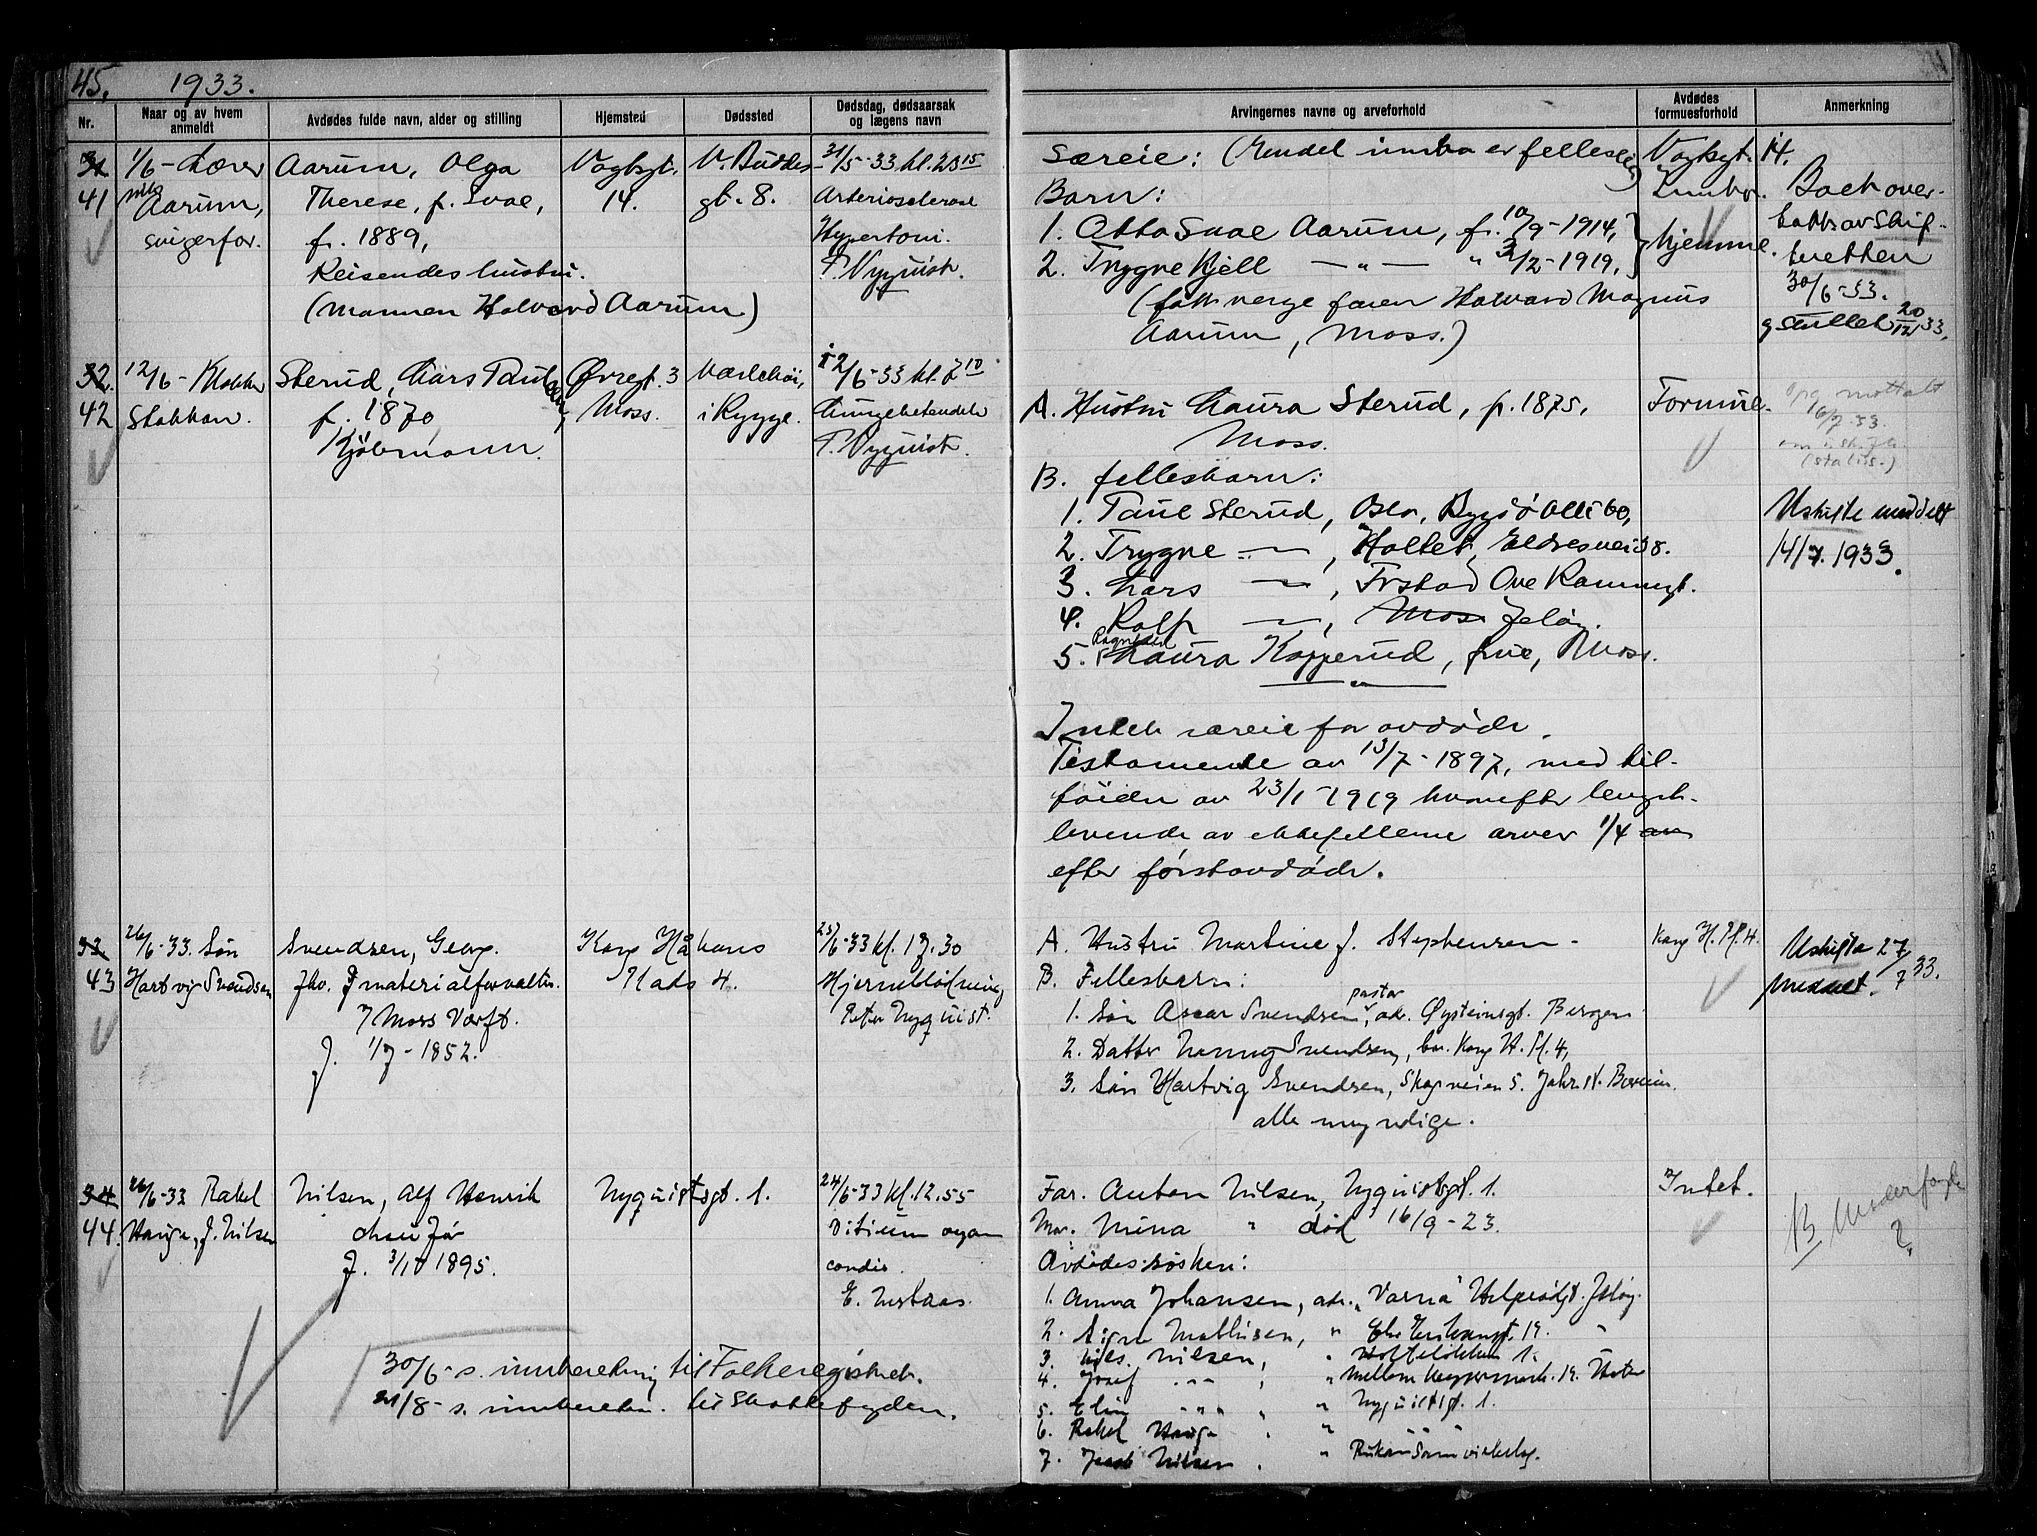 45. 1933.
Nr.
Naar og av hvem
anmeldt
Avdødes fulde navn, alder og stilling
Hjemsted
Dødssted
Dødsdag, dødsaarsak
og lægens navn
Arvingernes navne og arveforhold
Avdødes
formuesforhold
Anmerkning
31
41
1/6 - Lærer
Aarum,
svigerfor.
Aarum, Olga
Therese, f. Svae,
f. 1889,
Reisendes hustru.
(mannen Halvard Aarum)
Vogtsgt.
14.
V. Buddes
gt. 8.
31/5-33 kl. 23 15
Arteriosclerose
Hypertoni.
P. Nyquist.
Særeie: (Endel innbo er felleseie)
Barn:
1. Otto Svae Aarum, f. 10/9-1914,
2. Trygve Kjell — " — " 3/2-1919,
(født verge faren Halvard Magnus
Aarum, Moss.)
Vogtsgt. 14.
Innbo.
hjemme.
Boet over-
tatt av Skif-
teretten
30/6-33.
sluttet 20/12 33.
32.
42
12/6 - Klokker
Stakkan.
Sterud, Lars Paul
f. 1870
Kjøbmann.
Øvregt. 3
Moss.
Varlehøi,
i Rygge.
12/6-33 kl. 7 10
Lungebetendelse
P. Nyquist.
A. Hustru Laura Sterud, f. 1875,
Moss.
B. fellesbarn:
1. Paul Sterud, Oslo, Bygdø Alle 60,
2. Trygve — " — , Holtet, Eldresvei 38.
3. Lars — " — , Fr.stad Ove Rammsgt.
4. Rolf — " — , Moss Jeløy.
5. Ragnhild Laura Kopperud, frue, Moss.
Intet særeie for avdøde.
Testamente av 13/7-1897, med til-
føielse av 23/1-1919 hvorefter lengst-
levende av ektefellerne arver 1/4
efter førstavdøde.
Formue.
mottatt
16/7-33.
Uskifte meddelt
14/7. 1933.
33.
43
26/6-33. Søn
Hartvig Svendsen
Svendsen, Georg.
fhv. materialforvalter
v/ Moss Værft.
f. 1/7-1852.
Kong Håkons
Plads 4.
25/6-33 kl. 17.30
Hjerneblødning
Peter Nyquist.
A. Hustru Martine f. Stephensen -
B. Fellesbarn:
1. Søn Oscar Svendsen, pastor, adr. Øysteinsgt. Bergen
2. Datter Nanny Svendsen, bor. Kong H. Pl. 4,
3. Søn Hartvig Svendsen, Skogveien 5. Jahr N. Bærum.
alle myndige.
Kong H. Pl. 4.
Uskifte 27/7 33.
meddelt.
34
44.
26/6-33 Rakel
Hauge, f. Nilsen
Nilsen, Alf Henrik
chauffør
f. 3/10 1895.
Nyquistsgt. 1.
24/6-33 kl. 12.55
Vitium organ
cordis.
E. Nestaas.
Far. Anton Nilsen, Nyquistsgt. 1.
Mor. Mina " død 16/9-23.
Avdødes søsken:
1. Anna Johansen, adr. "Varna" Helgerødgt. Jeløy.
2. Signe Mathisen, " 19. "
3. Nils. Nilsen, " 1.
4. Josef " " , " 19.
5. Elin " " " , " Nyquistsgt. 1.
6. Rakel Hauge , " " "
7. Jacob Nilsen , " Rjukan Samvirkelag.
Intet.
30/6-s. innberetning til Folkeregistret.
21/8-s. innberetn. til Skattefogden.